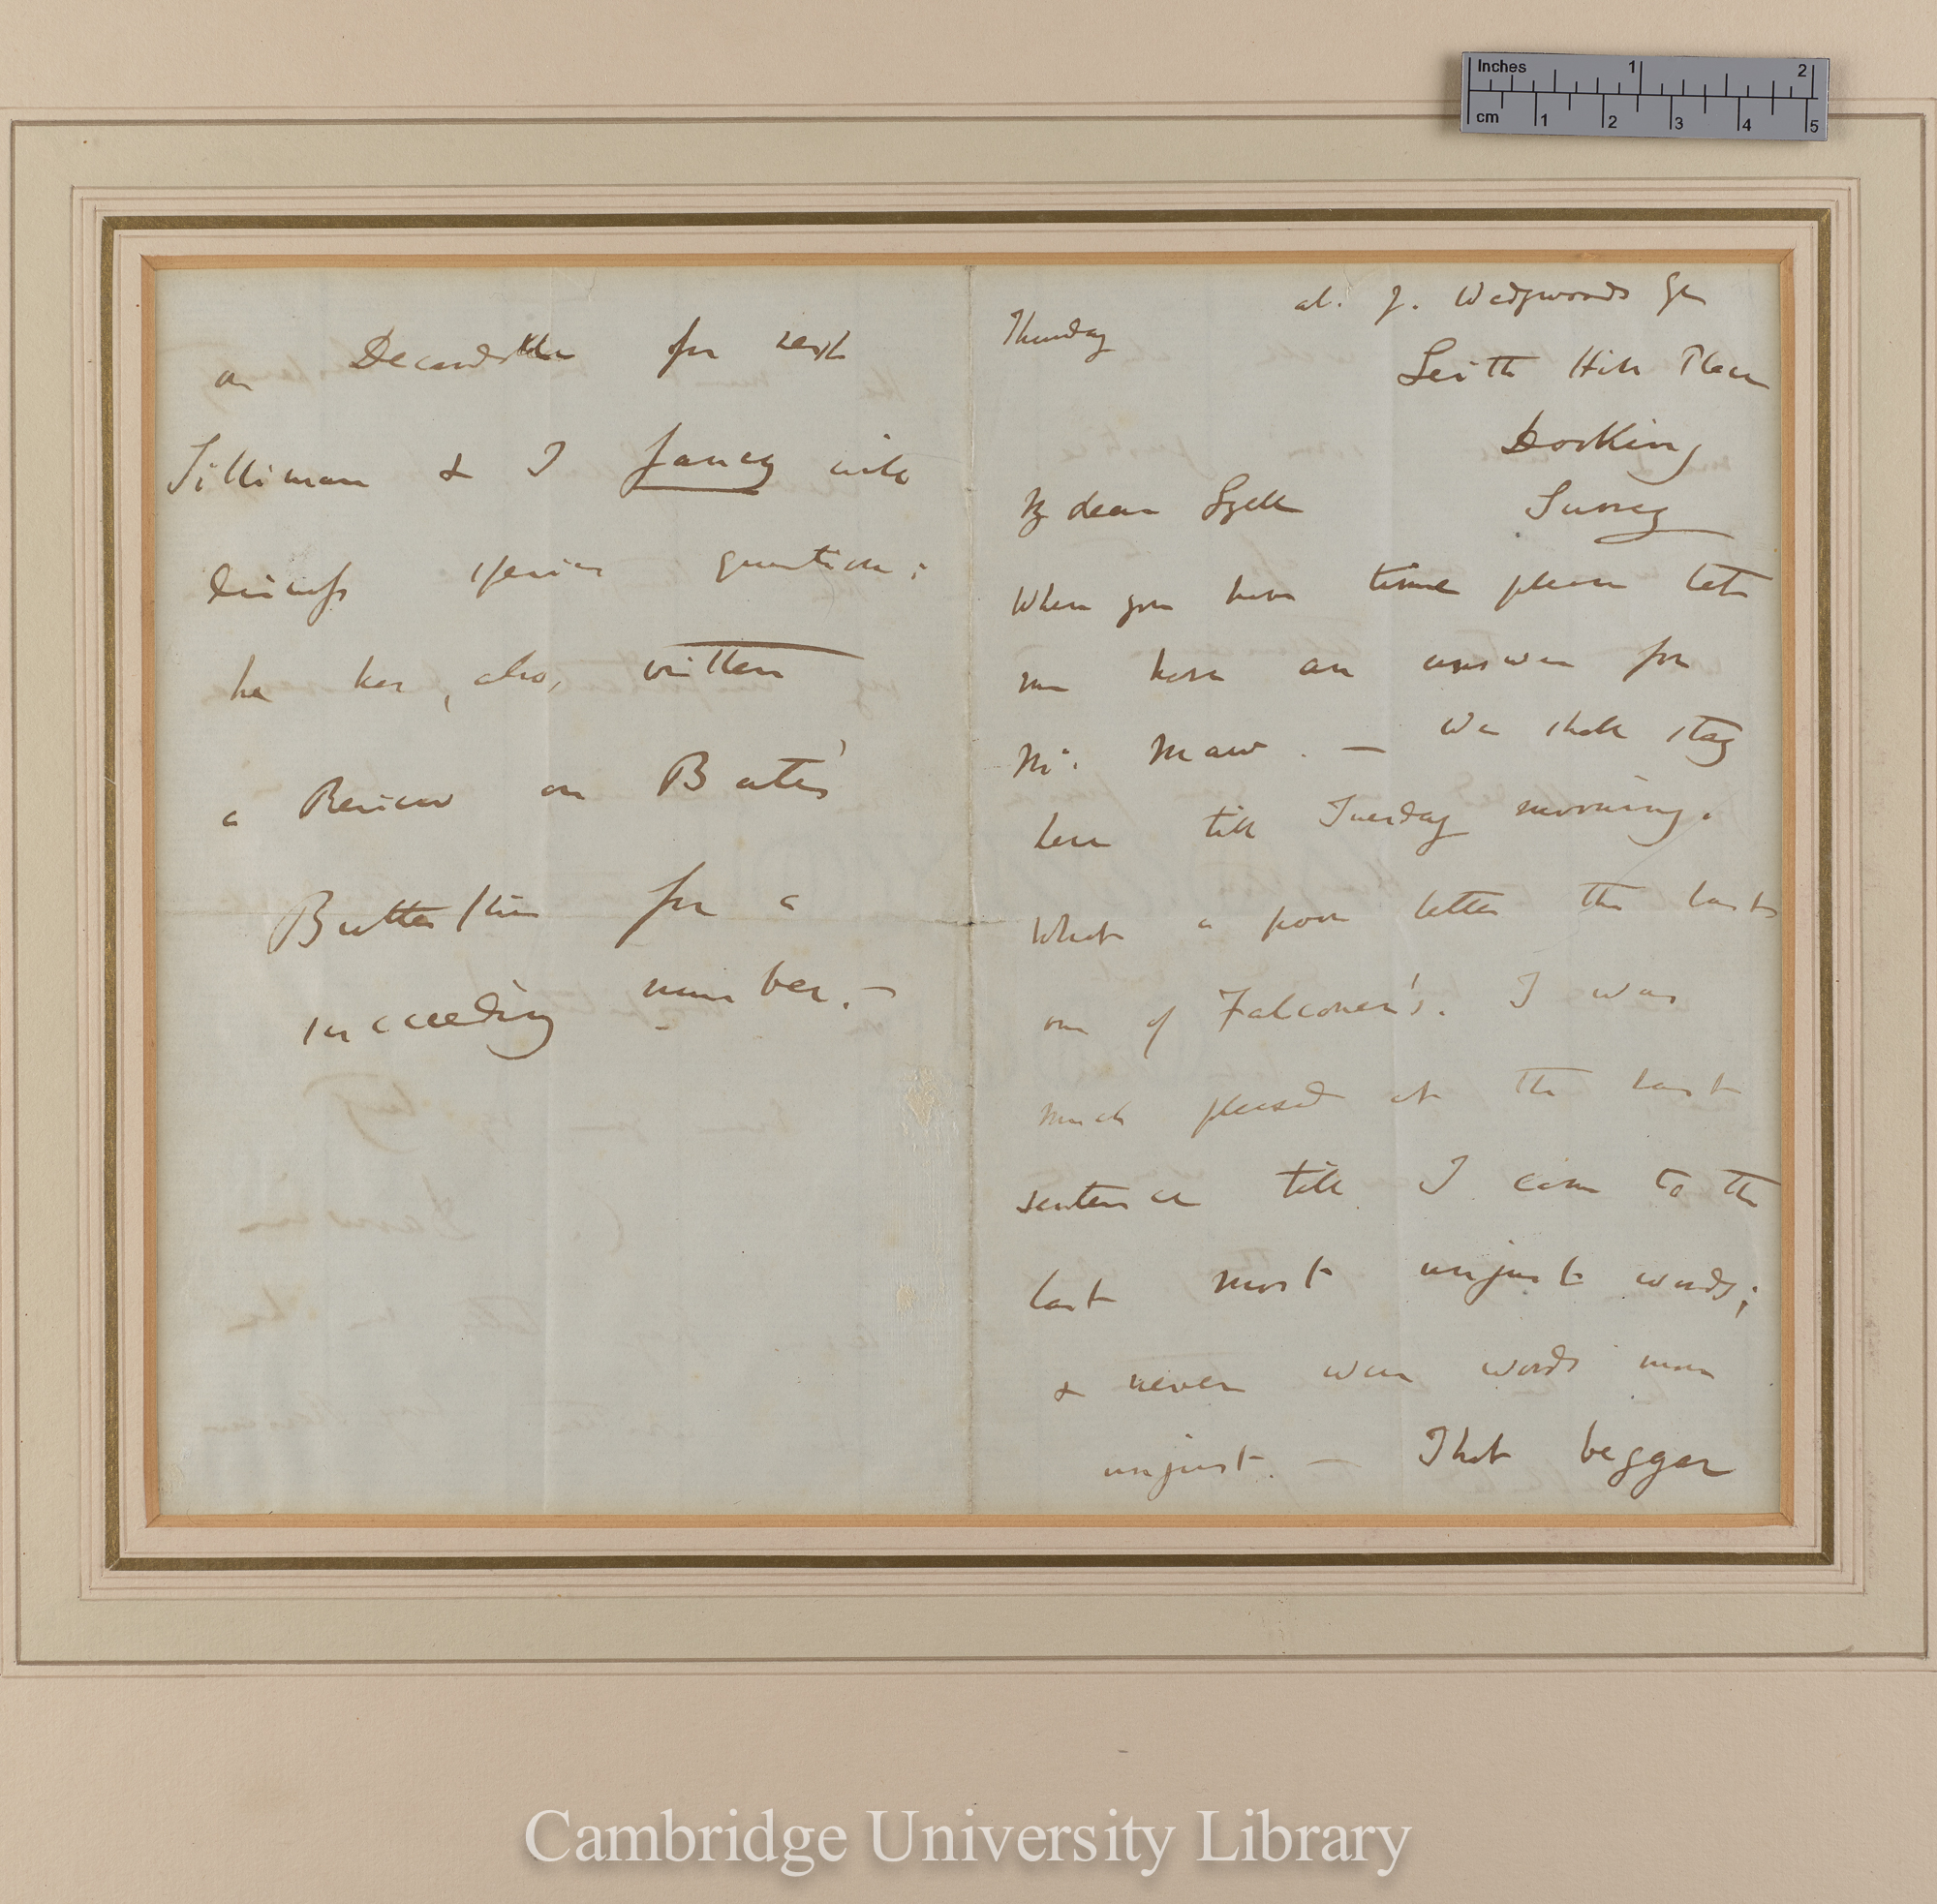 at. J. Wedgwoods Esq
Thursday
Leith Hill Place
Dorking
Surrey
My dear Lyell
When you have time please let
me have an answer for
Mr. Maw. — We shall stay
here till Tuesday morning.
What a poor letter the last
one of Falconer's. I was
much pleased at the last
sentence till I came to the
last most unjust words;
& never were words more
unjust. — That beggar
on Decandolle for next
Silliman & I fancy will
discuss species question:
he has, also, written
a Review on Bates'
Butterflies for a
succeeding number. —
Inches 1 2
cm 1 2 3 4 5
Cambridge University Library